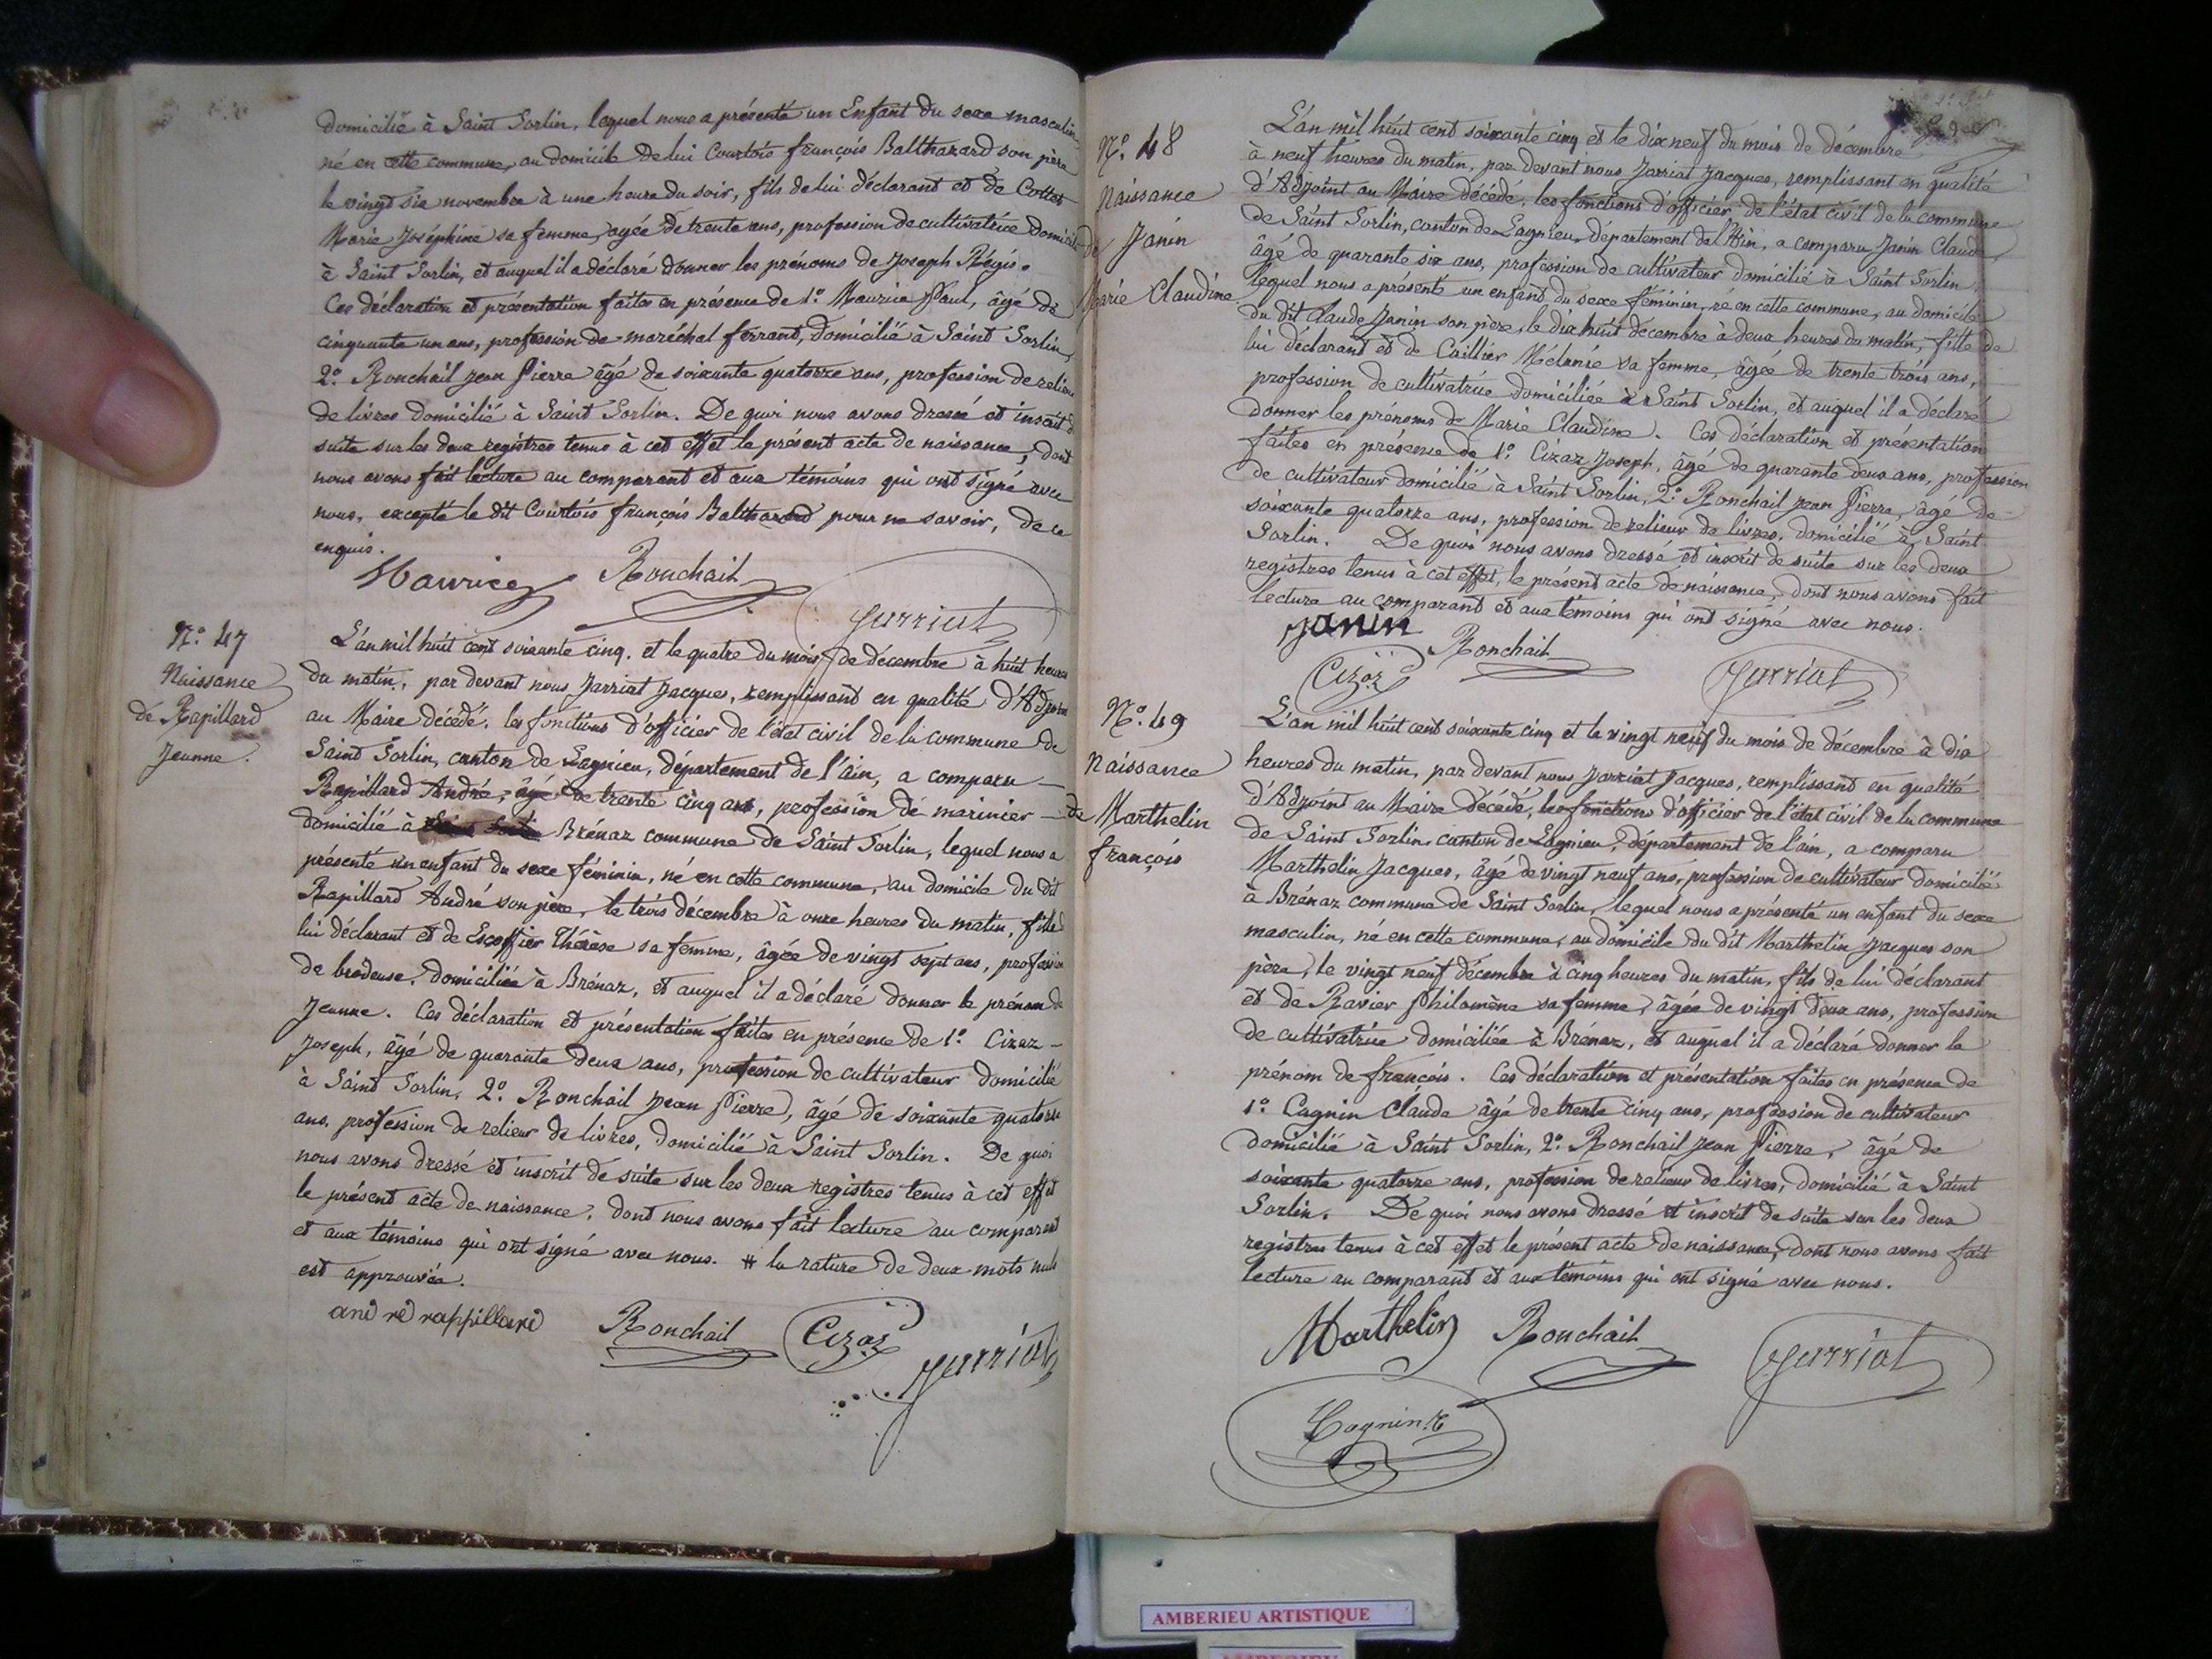 domicilié à Saint Sorlin, lequel nous a présenté un Enfant du sexe masculin,
né en cette commune, au domicile de lui Courtois françois Balthazard son père
le vingt six novembre à une heure du soir, fils de lui déclarant et de Cottet
Marie Joséphine sa femme, agée de trente ans, profession de cultivatrice domicil
à Saint Sorlin, et auquel il a déclaré donner les prénoms de Joseph Régis.
Ces déclaration et présentation faites en présence de 1.° Maurice Paul, âgé de
cinquante un ans, profession de maréchal ferrant, domicilié à Saint Sorlin,
2.° Ronchail Jean Pierre âgé de soixante quatorze ans, profession de relieur
de livres domicilié à Saint Sorlin. De quoi nous avons dressé et inscrit de
suite sur les deux registres tenus à cet effet le présent acte de naissance, dont
nous avons fait lecture au comparant et aux témoins qui ont signé avec
nous, excepté le dit Courtois françois Balthazard pour ne savoir, de ce
enquis.
Maurice Ronchail
Jarriat
N.° 47
Naissance
de Rapillard
Jeanne.
L'an mil huit cent soixante cinq. et le quatre du mois de décembre à huit heures
du matin, par devant nous Jarriat Jacques, remplissant en qualité d'Adjoint
au Maire décédé, les fonctions d'officier de l'état civil de la commune de
Saint Sorlin, canton de Lagnieu, département de l'ain, a comparu
Rapillard André, âgé de trente cinq ans, profession de marinier
domicilié à Brénaz commune de Saint Sorlin, lequel nous a
présenté un enfant du sexe féminin, né en cette commune, au domicile du dit
Rapillard André son père, le trois décembre à onze heures du matin, fille de
lui déclarant et de Escoffier Thérèse sa femme, âgée de vingt sept ans, profession
de brodeuse, domiciliée à Brénaz, et auquel il a déclaré donner le prénom de
Jeanne. Ces déclaration et présentation faites en présence de 1.° Cizaz
Joseph, âgé de quarante deux ans, profession de cultivateur domicilié
à Saint Sorlin, 2.° Ronchail Jean Pierre, âgé de soixante quatorze
ans, profession de relieur de livres, domicilié à Saint Sorlin. De quoi
nous avons dressé et inscrit de suite sur les deux registres tenus à cet effet
le présent acte de naissance, dont nous avons fait lecture au comparant
et aux témoins qui ont signé avec nous. # la rature de deux mots nuls
est approuvée.
andré rappillard Ronchail Cizaz Jarriat
N.° 48
Naissance
de Janin
Marie Claudine
L'an mil huit cent soixante cinq et le dix neuf du mois de décembre
à neuf heures du matin, par devant nous Jarriat Jacques, remplissant en qualité
d'Adjoint au Maire décédé, les fonctions d'officier de l'état civil de la commune
de Saint Sorlin, canton de Lagnieu, département de l'Ain, a comparu Janin Claude,
âgé de quarante six ans, profession de cultivateur domicilié à Saint Sorlin
lequel nous a présenté un enfant du sexe féminin, né en cette commune, au domicile
du dit Claude Janin son père, le dix huit décembre à deux heures du matin, fille de
lui déclarant et de Caillier Mélanie sa femme, âgée de trente trois ans,
profession de cultivatrice domiciliée à Saint Sorlin, et auquel il a déclaré
donner les prénoms de Marie Claudine. Ces déclaration et présentation
faites en présence de 1.° Cizaz Joseph, âgé de quarante deux ans, profession
de cultivateur domicilié à Saint Sorlin, 2.° Ronchail Jean Pierre, âgé de
soixante quatorze ans, profession de relieur de livres, domicilié à Saint
Sorlin. De quoi nous avons dressé et inscrit de suite sur les deux
registres tenus à cet effet, le présent acte de naissance, dont nous avons fait
lecture au comparant et aux témoins qui ont signé avec nous.
Janin Ronchail
Cizaz Jarriat
N.° 49
Naissance
de Marthelin
françois
L'an mil huit cent soixante cinq et le vingt neuf du mois de décembre à dix
heures du matin, par devant nous Jarriat Jacques, remplissant en qualité
d'Adjoint au Maire décédé, les fonctions d'officier de l'état civil de la commune
de Saint Sorlin, canton de Lagnieu, département de l'ain, a comparu
Marthelin Jacques, âgé de vingt neuf ans, profession de cultivateur domicilié
à Brénaz commune de Saint Sorlin, lequel nous a présenté un enfant du sexe
masculin, né en cette commune, au domicile du dit Marthelin Jacques son
père, le vingt neuf décembre à cinq heures du matin, fils de lui déclarant
et de Ravier Philomène sa femme, âgée de vingt deux ans, profession
de cultivatrice domiciliée à Brénaz, et auquel il a déclaré donner le
prénom de françois. Ces déclaration et présentation faites en présence de
1.° Cagnin Claude âgé de trente cinq ans, profession de cultivateur
domicilié à Saint Sorlin, 2.° Ronchail Jean Pierre, âgé de
soixante quatorze ans, profession de relieur de livres, domicilié à Saint
Sorlin. De quoi nous avons dressé et inscrit de suite sur les deux
registres tenus à cet effet le présent acte de naissance, dont nous avons fait
lecture au comparant et aux témoins qui ont signé avec nous.
Marthelin Ronchail Jarriat
Cagnin
AMBERIEU ARTISTIQUE